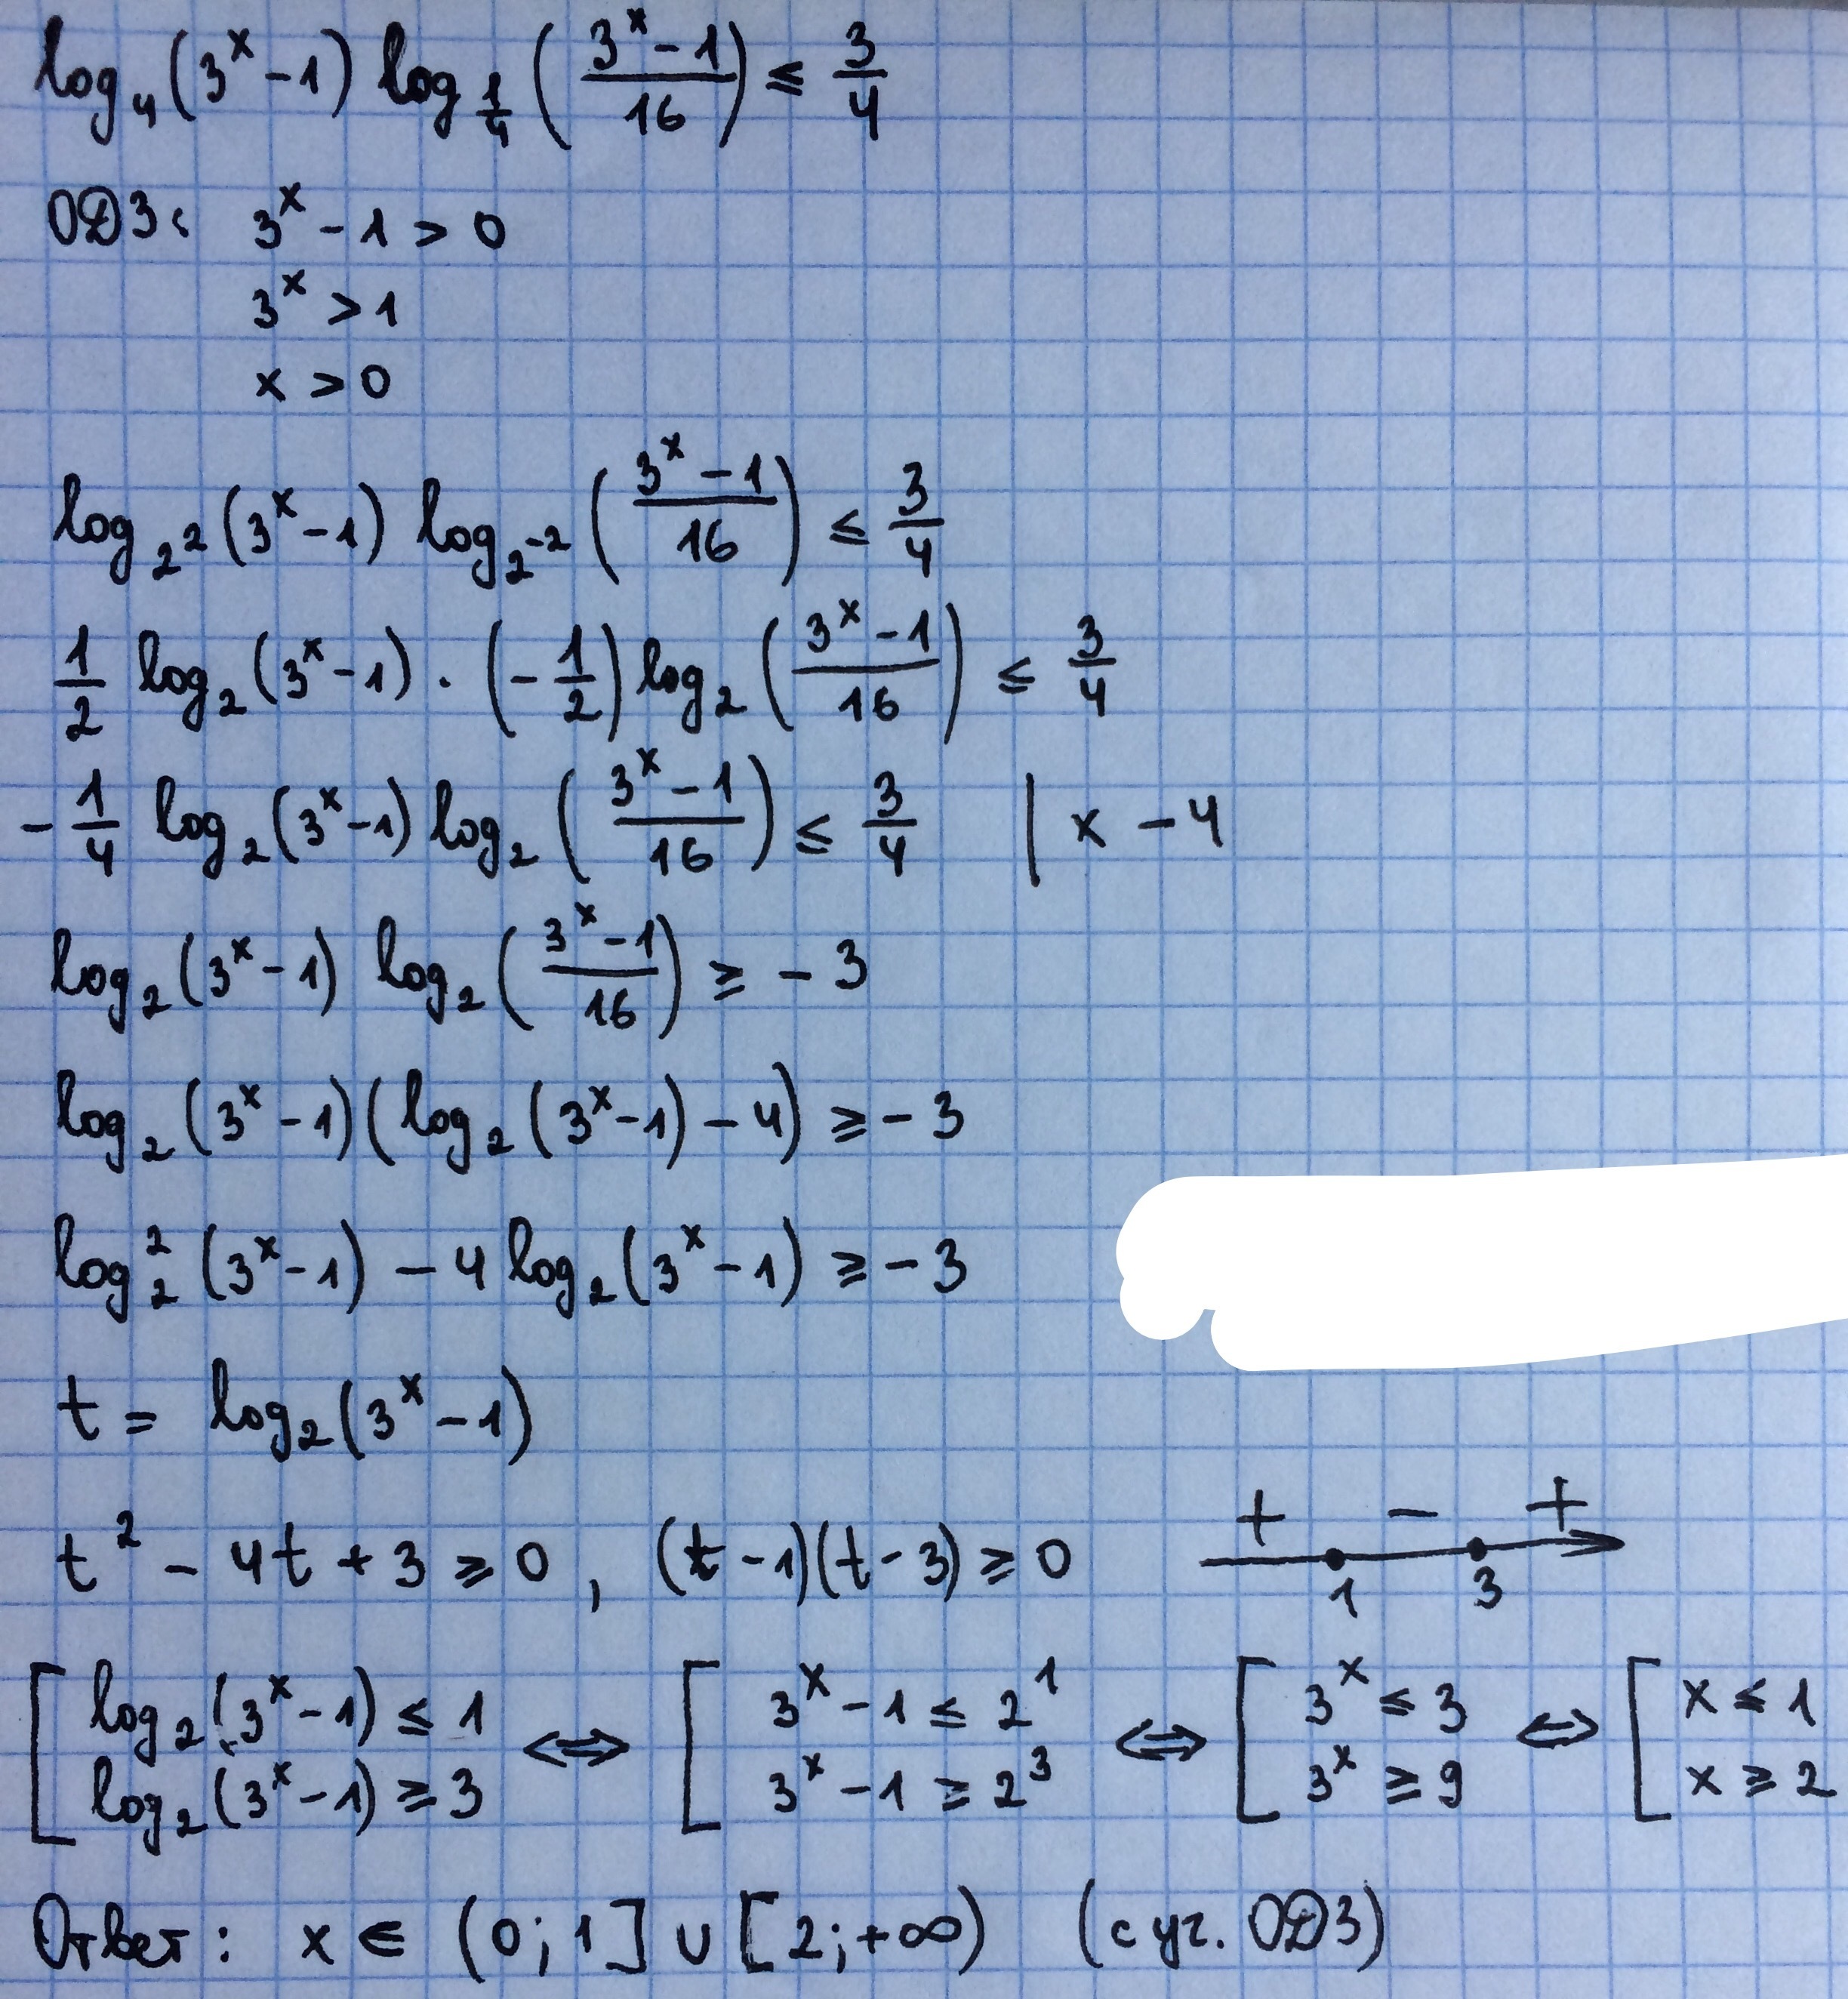 log₄(3ˣ-1) log_{1/4}((3ˣ-1)/16) ≤ 3/4
ОДЗ: 3ˣ - 1 > 0
3ˣ > 1
x > 0
log_{2²}(3ˣ-1) log_{2⁻²}((3ˣ-1)/16) ≤ 3/4
1/2 log₂(3ˣ-1) · (-1/2) log₂((3ˣ-1)/16) ≤ 3/4
-1/4 log₂(3ˣ-1) log₂((3ˣ-1)/16) ≤ 3/4 | x -4
log₂(3ˣ-1) log₂((3ˣ-1)/16) ≥ -3
log₂(3ˣ-1)(log₂(3ˣ-1)-4) ≥ -3
log₂²(3ˣ-1) - 4 log₂(3ˣ-1) ≥ -3
t = log₂(3ˣ-1)
t² - 4t + 3 ≥ 0, (t-1)(t-3) ≥ 0 + - +
1 3
[ log₂(3ˣ-1) ≤ 1 ⇔ [ 3ˣ-1 ≤ 2¹ ⇔ [ 3ˣ ≤ 3 ⇔ [ x ≤ 1
log₂(3ˣ-1) ≥ 3 3ˣ-1 ≥ 2³ 3ˣ ≥ 9 x ≥ 2
Ответ: x ∈ (0; 1] ∪ [2; +∞) (с уч. ОДЗ)